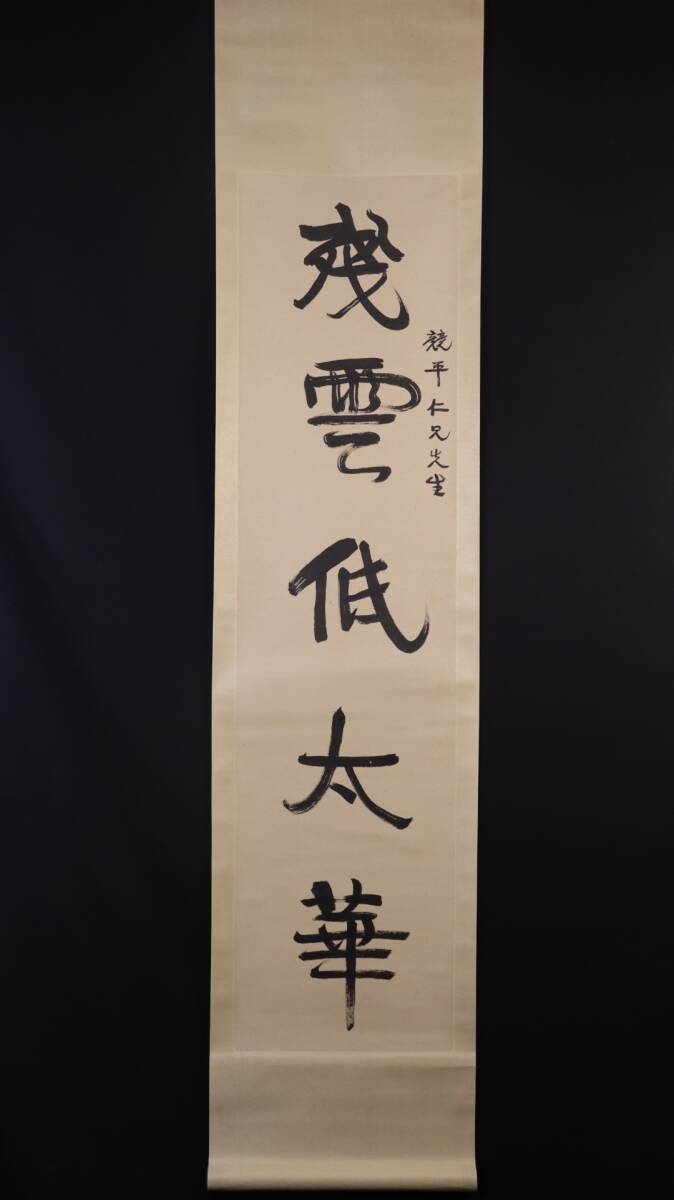 競平仁兄先生
残雲低太華